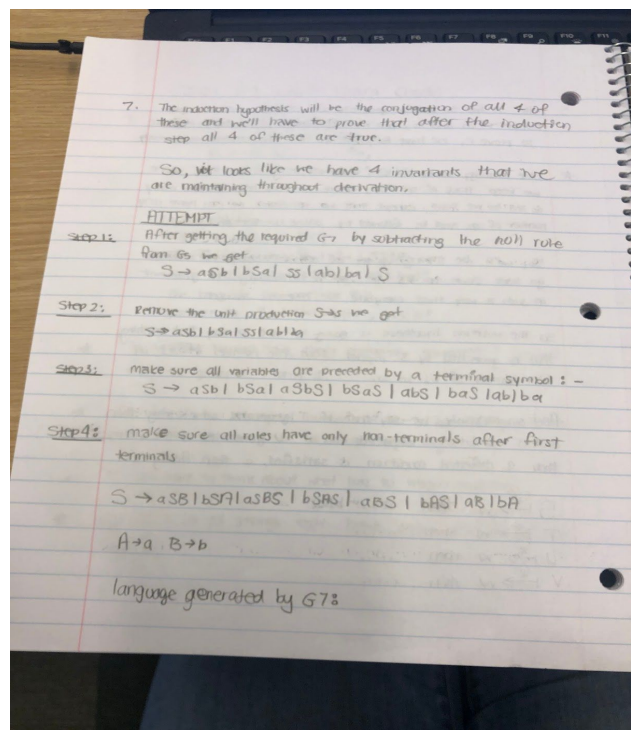 7. The induction hypothesis will be the conjugation of all 4 of
these and we'll have to prove that after the induction
step all 4 of these are true.
So, it looks like we have 4 invariants that we
are maintaining throughout derivation.
ATTEMPT
Step 1: After getting the required G7 by subtracting the null rule
from G5 we get
S → aSb | bSa | SS | ab | ba | S
Step 2: Remove the unit production S→S we get
S → aSb | bSa | SS | ab | ba
Step 3: make sure all variables are preceded by a terminal symbol : -
S → aSb | bSa | aSbS | bSaS | abS | baS | ab | ba
Step 4: make sure all rules have only non-terminals after first
terminals
S → aSB | bSA | aSBS | bSAS | aBS | bAS | aB | bA
A→a B→b
language generated by G7: